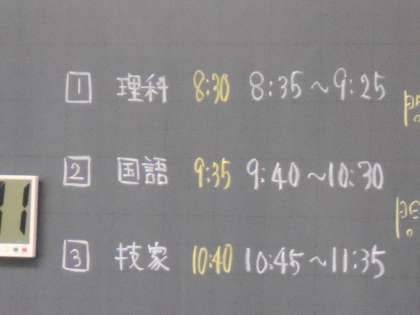 1 理科 8:30 8:35~9:25
2 国語 9:35 9:40~10:30
3 技家 10:40 10:45~11:35